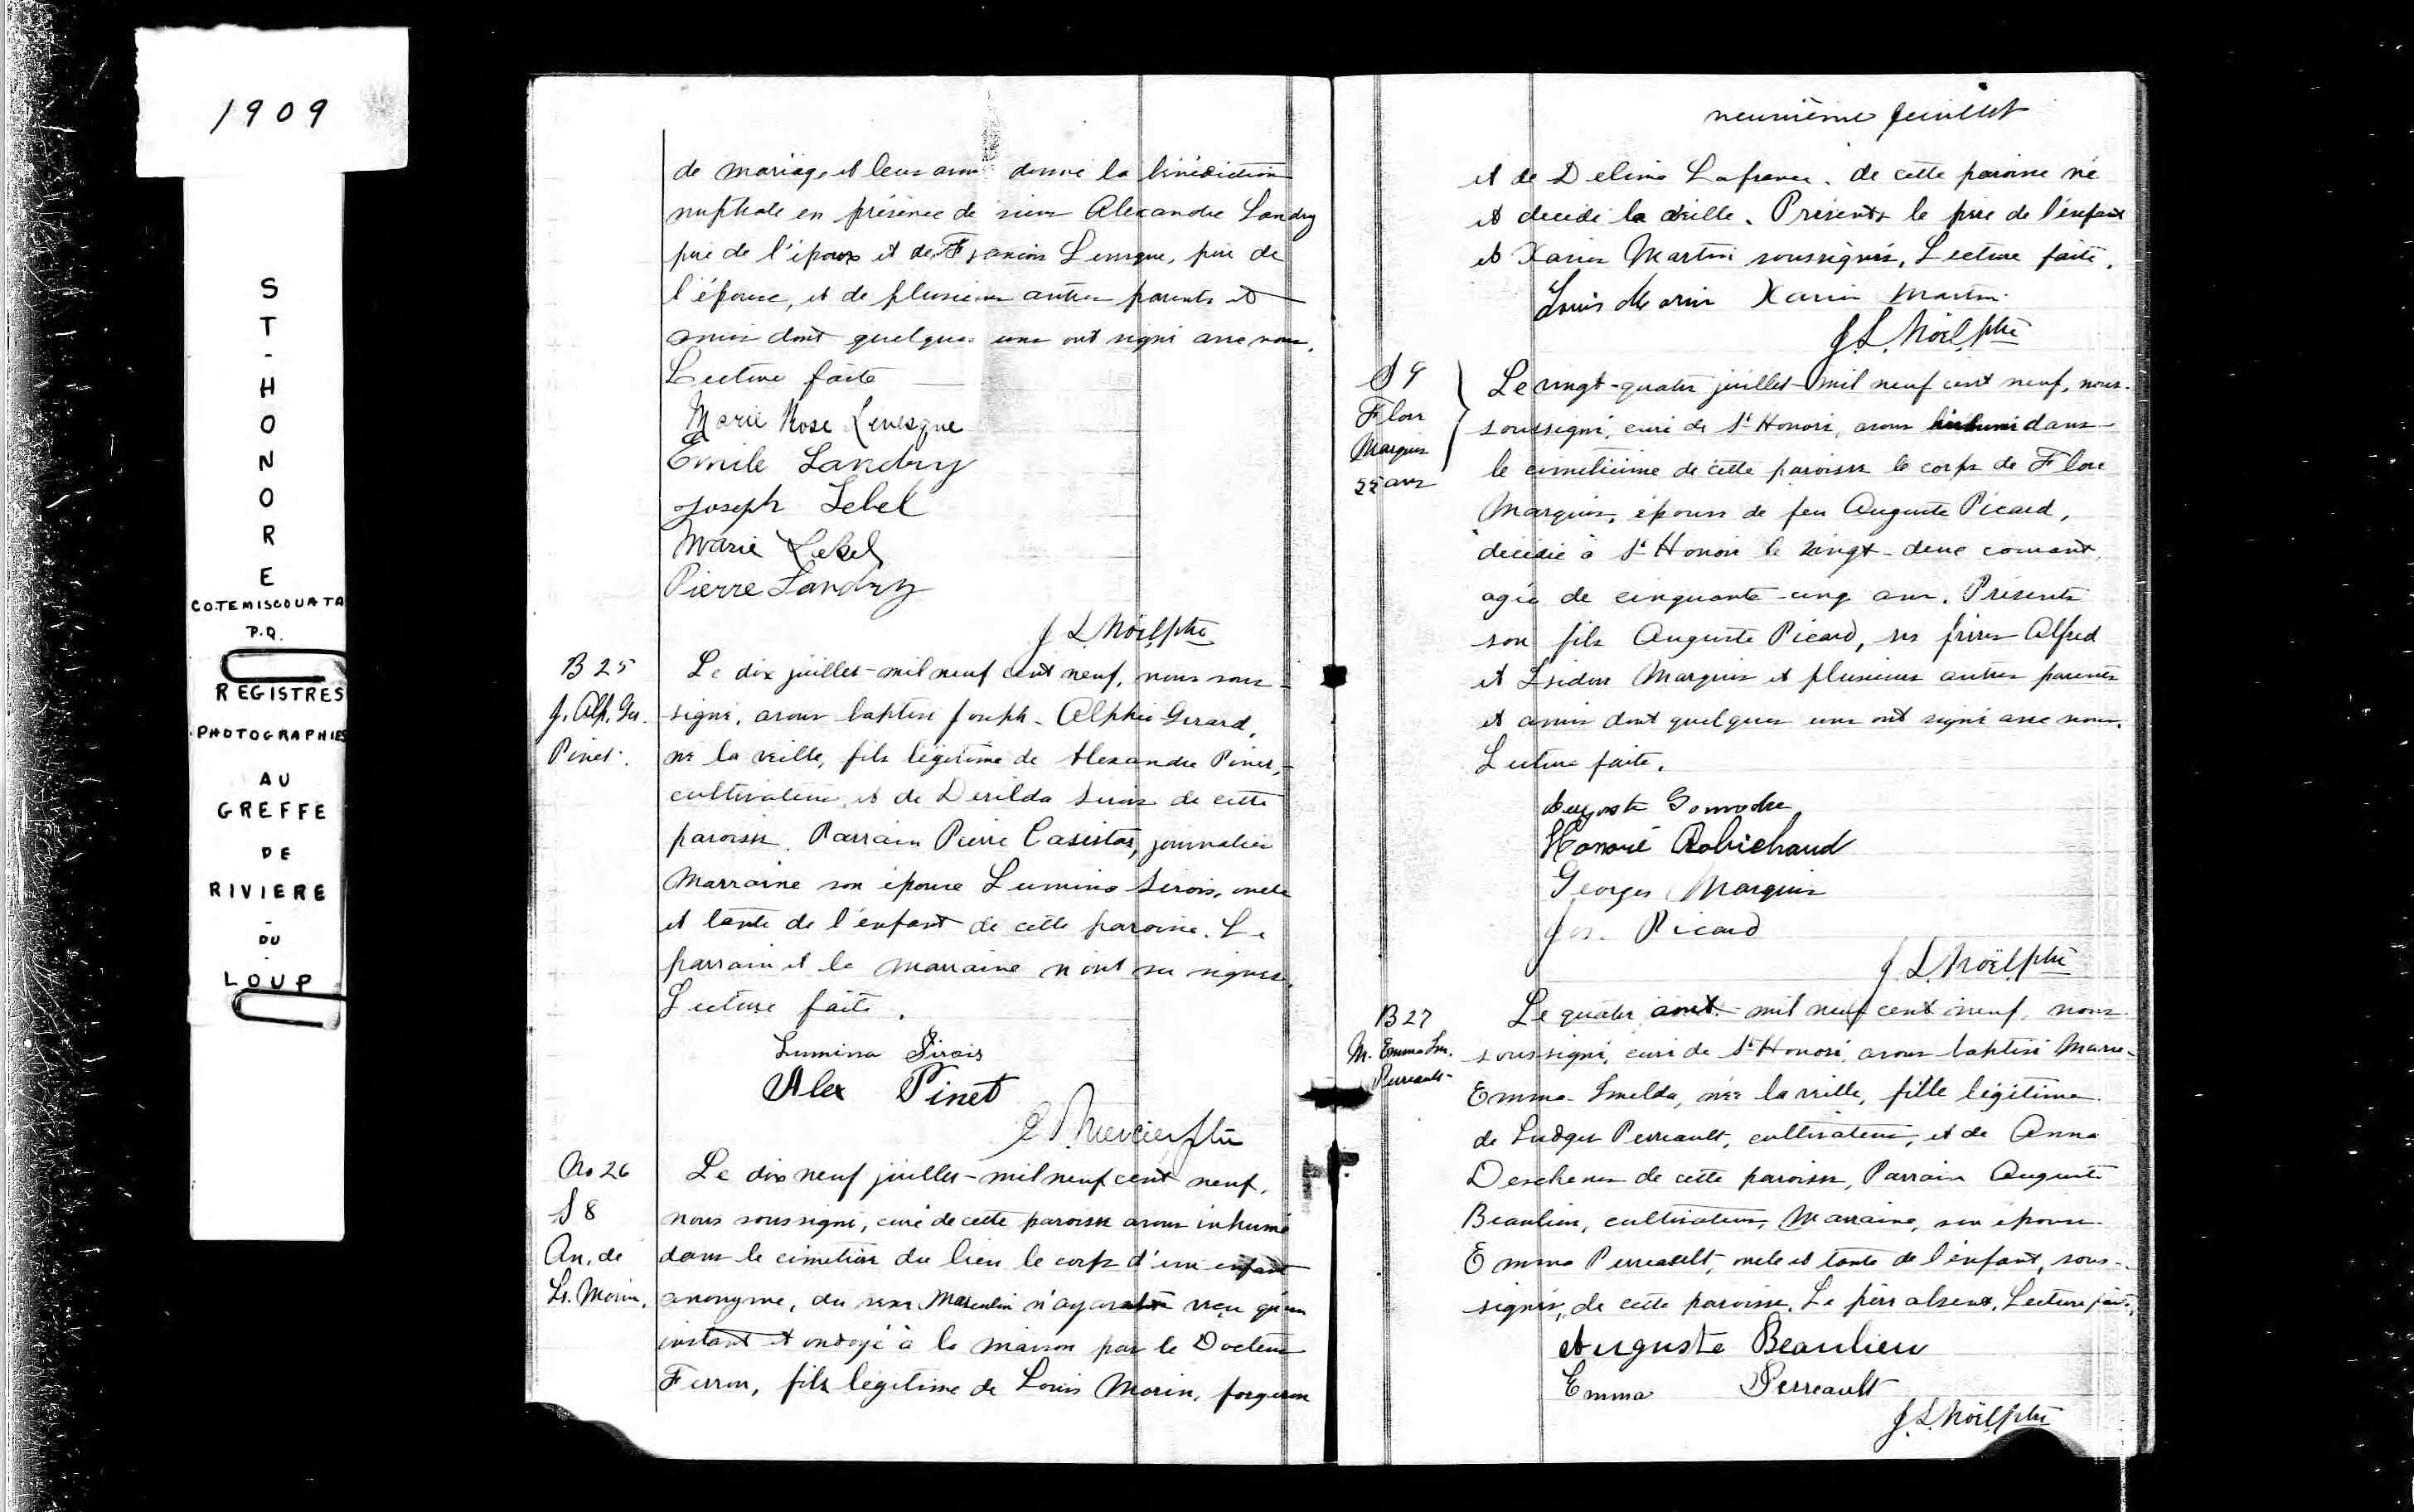 1909
S
T
-
H
O
N
O
R
E
CO. TEMISCOUATA
P.Q.
REGISTRES
PHOTOGRAPHIES
AU
GREFFE
DE
RIVIERE
-
DU
-
LOUP
de mariage et leur avons donné la bénédiction
nuptiale en présence de sieur Alexandre Landry
père de l'époux et de François Levesque, père de
l'épouse, et de plusieurs autres parents et
amis dont quelques uns ont signé avec nous.
Lecture faite
Marie Rose Levesque
Emile Landry
Joseph Lebel
Marie Lebel
Pierre Landry
J L Noël ptre
B 25
J. Alp. Ger.
Pinet.
Le dix juillet mil neuf cent neuf, nous sous-
signé, avons baptisé Joseph-Alphée Gerard,
né la veille, fils légitime de Alexandre Pinet,
cultivateur, et de Derilda Sirois de cette
paroisse. Parrain Pierre Casista, journalier
Marraine son épouse Lumina Sirois, oncle
et tante de l'enfant de cette paroisse. Le
parrain et la marraine n'ont su signer.
Lecture faite.
Lumina Sirois
Alex Pinet
Mercier ptre
No 26
S 8
An. de
Ls. Morin.
Le dix neuf juillet mil neuf cent neuf,
nous soussigné, curé de cette paroisse avons inhumé
dans le cimetière du lieu le corps d'un enfant
anonyme, du sexe masculin n'ayant vécu qu'un
instant et ondoyé à la maison par le Docteur
Ferron, fils légitime de Louis Morin, forgeron
neuvième feuillet
et de Delima Lafrance. de cette paroisse né
et décédé la veille. Présents le père de l'enfant
et Xavier Martin soussignés. Lecture faite.
Louis Morin Xavier Martin
J. L. Noël, ptre
S 9
Flore
Marquis
55 ans
Le vingt-quatre juillet mil neuf cent neuf, nous
soussigné, curé de St Honoré, avons inhumé dans
le cimetière de cette paroisse le corps de Flore
Marquis, épouse de feu Auguste Picard,
décédée à St Honoré le vingt-deux courant,
agée de cinquante-cinq ans. Présents
son fils Auguste Picard, ses frères Alfred
et Isidore Marquis et plusieurs autres parents
et amis dont quelques uns ont signé avec nous.
Lecture faite.
Auguste
Honoré Robichaud
Georges Marquis
Jos. Picard
J L Noël, ptre
B 27
M. Emma Im.
Perreault
Le quatre août mil neuf cent neuf, nous
soussigné, curé de St Honoré, avons baptisé Marie-
Emma-Imelda, née la veille, fille légitime
de Ludger Perreault, cultivateur, et de Anna
Deschenes de cette paroisse, Parrain Auguste
Beaulieu, cultivateur, Marraine, son épouse
Emma Perreault, oncle et tante de l'enfant, sous-
signés, de cette paroisse. Le père absent. Lecture faite.
Auguste Beaulieu
Emma Perreault
J. L. Noël ptre